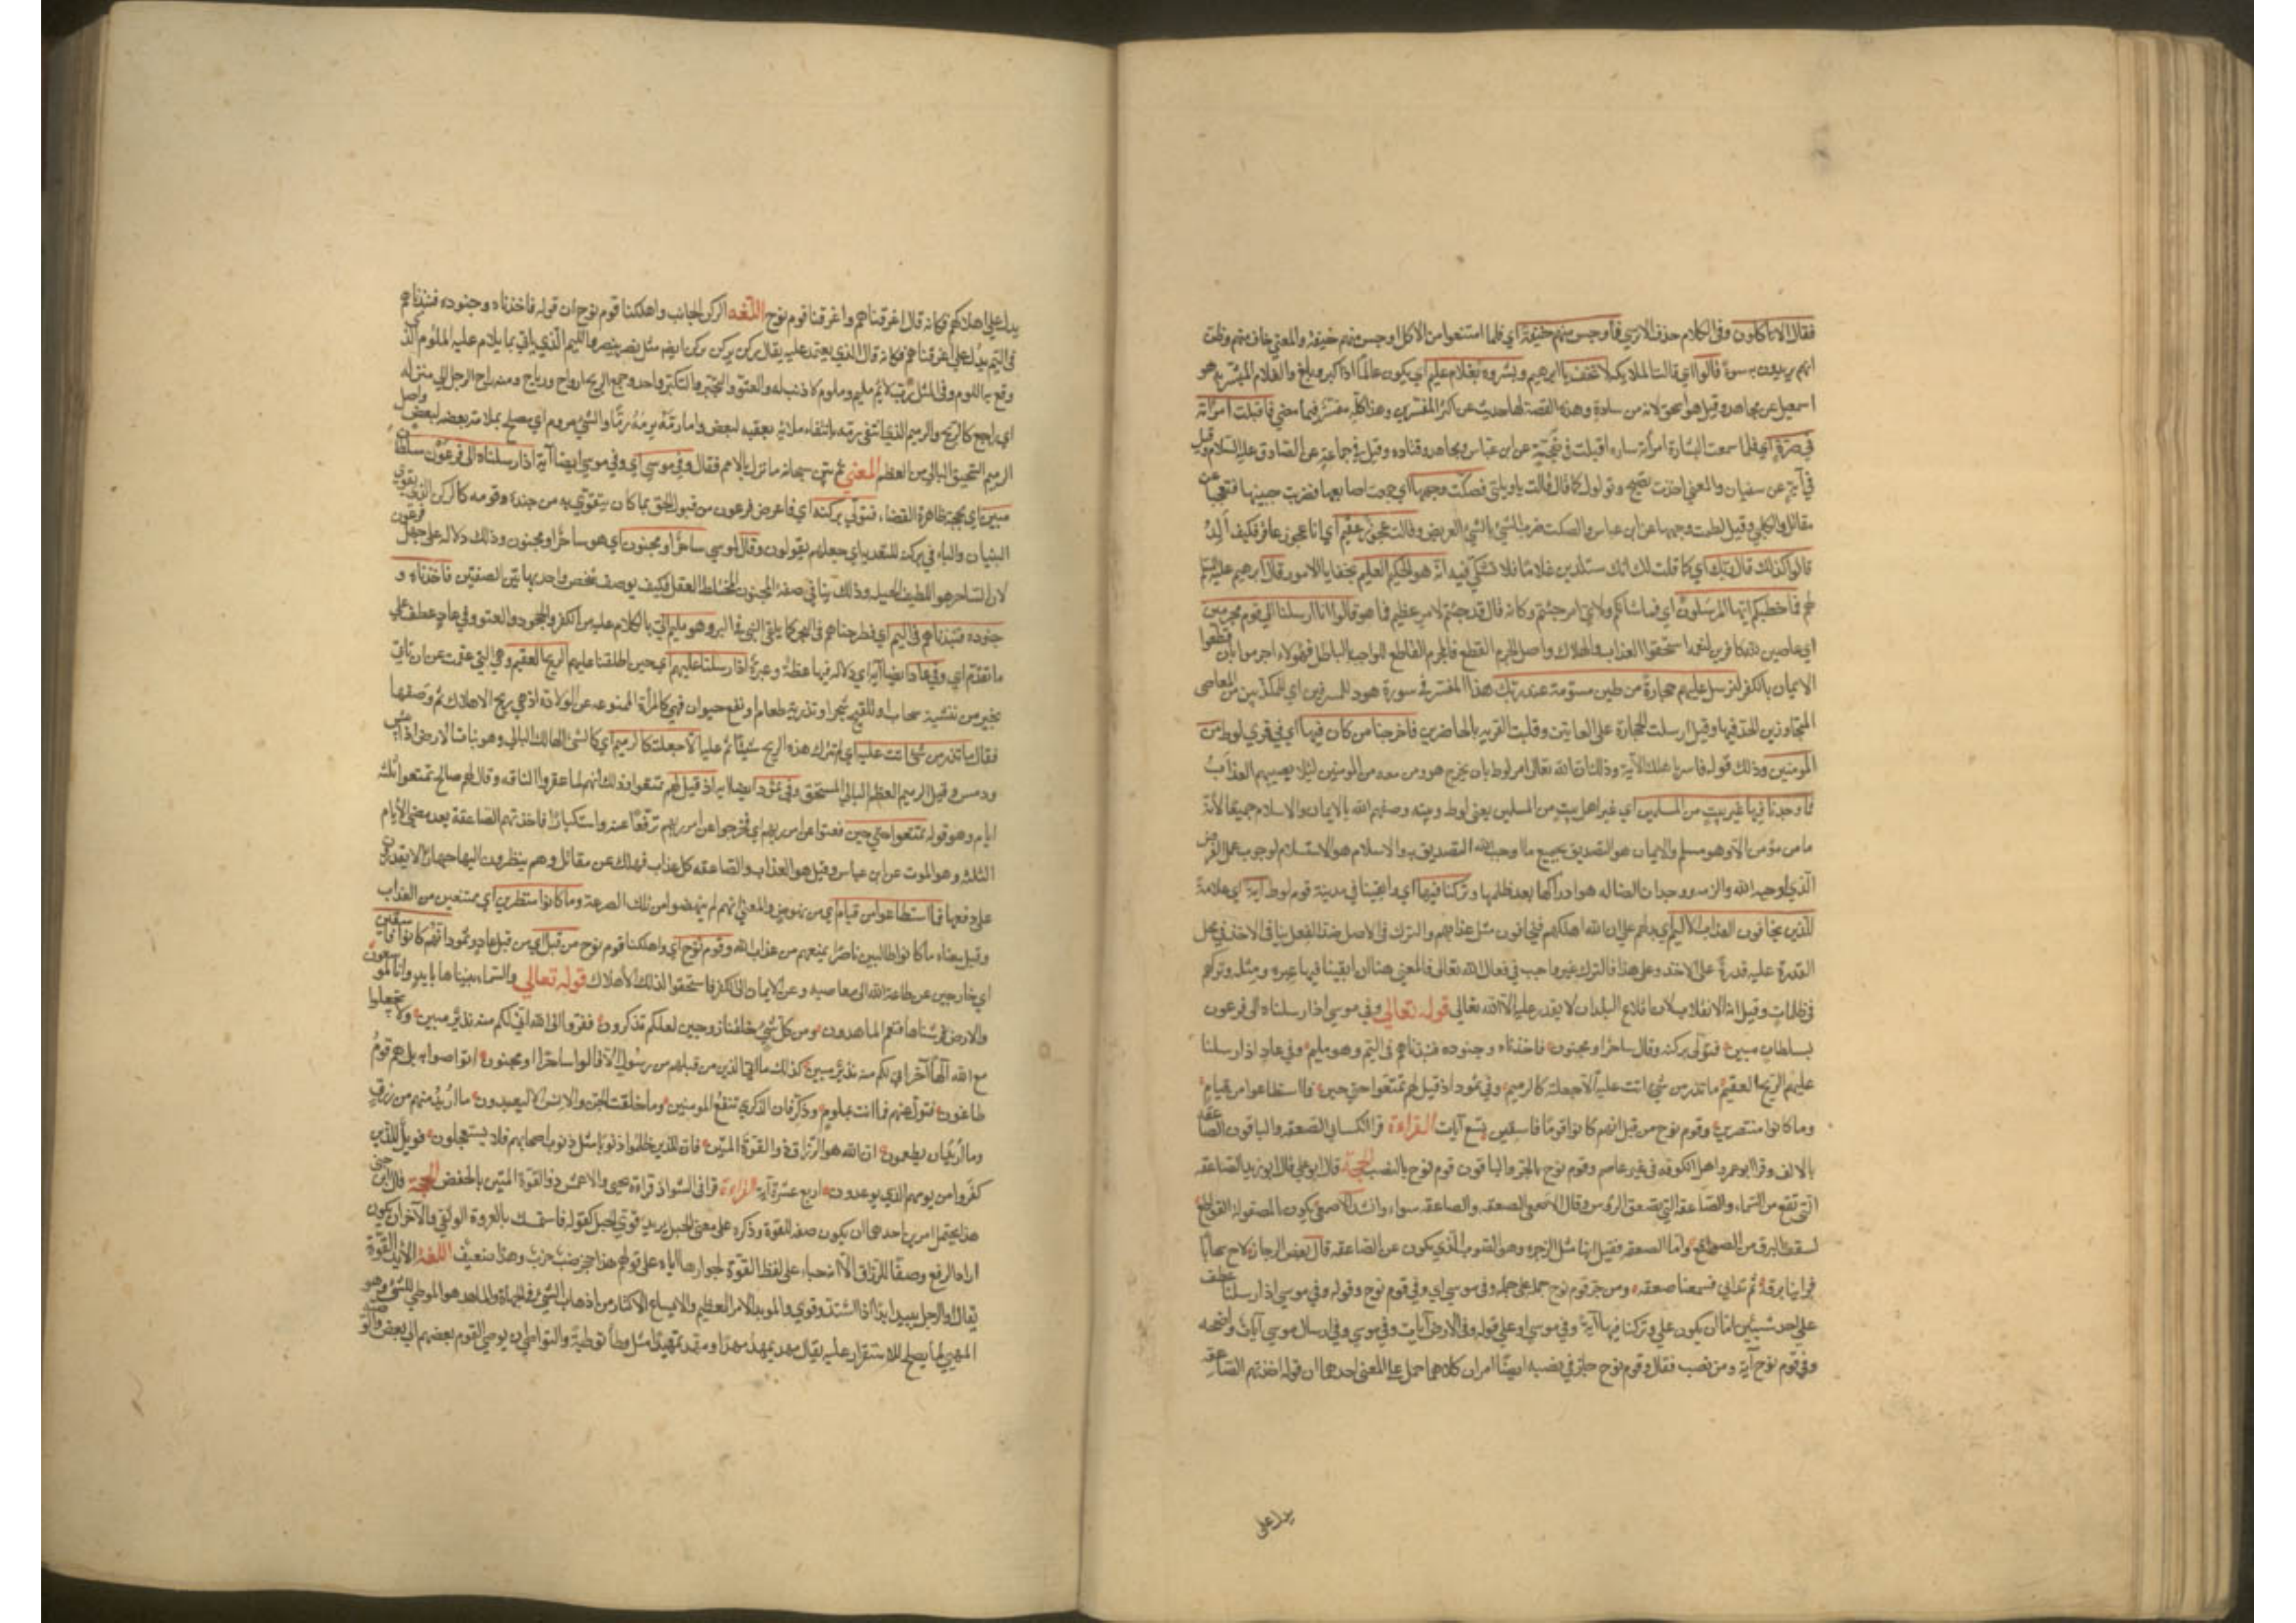 فقال الا تاكلون وفى الكلام حذف لا تري فاوجس منهم خيفة اي فلما امتنعوا من الاكل اوجس منهم خيفة والمعنى خاف منهم وظن
انهم يريدون به سوءً قالوا اي قالت الملائكة لا تخف يا ابرهيم وبشروه بغلام عليم اي يكون عالماً اذا كبر وبلغ والغلام المبشر به هو
اسمعيل عن مجاهد وقيل هو اسحق لانه من سارة وهذه القصة لها حديث عن اكثر المفسرين وهذا كله مفسر فيما مضى فاقبلت امراته
في صرة اي فلما سمعت البشارة امرأته ساره اقبلت في ضجة عن ابن عباس ومجاهد وقتاده وقيل في جماعة عن الصادق عليه السلام وقيل
في رنة عن سفيان والمعنى اخذت تصيح وتولول كما قال قالت ياويلتى فصكت وجهها اي جمعت اصابعها فضربت جبينها تعجبا عن
مقاتل والكلبي وقيل لطمت وجهها عن ابن عباس والصكت ضرب الشئ بالشئ العريض وقالت عجوز عقيم اي انا عجوز عاقر فكيف ألد
قالوا كذلك قال ربك اي كما قلت لك انك ستلدين غلاما فلا تشكي فيه انه هو الحكيم العليم بخفايا الامور قال ابرهيم عليه السلام
لهم فما خطبكم ايها المرسلون اي فما شانكم ولاي امر جئتم وكانه قال قد جئتم لامر عظيم فما هو قالوا انا ارسلنا الى قوم مجرمين
اي عاصين لله كافرين لنعمه استحقوا العذاب والهلاك واصل الجرم القطع فالمجرم القاطع للواجب بالباطل فهؤلاء اجرموا بان قطعوا
الايمان بالكفر لنرسل عليهم حجارة من طين مسومة عند ربك هذا المفسر في سورة هود للمسرفين اي للمكذبين من المعاصى
المتجاوزين الحد فيها وقيل ارسلت الحجارة على الغائبين وقلبت القرية بالحاضرين فاخرجنا من كان فيها اي في قرى لوط من
المؤمنين وذلك قوله فاسر باهلك الآية وذلك ان الله تعالى امر لوطا بان يخرج هو ومن معه من المؤمنين لئلا يصيبهم العذاب
فما وجدنا فيها غير بيت من المسلمين اي غير اهل بيت من المسلمين يعنى لوط وبنته وصفهم الله بالايمان والاسلام جميعا لأنه
ما من مؤمن الا وهو مسلم والايمان هو التصديق بجميع ما اوجب الله التصديق به والاسلام هو الاستسلام لوجوب عمل الفرض
الذي اوجبه الله والزمه ووجدان الضاله هو ادراكها بعد طلبها وتركنا فيها اي وابقينا في مدينة قوم لوط آية اي علامة
للذين يخافون العذاب الاليم اي يدلهم على ان الله اهلكهم فيخافون مثل عذابهم والترك في الاصل ضد الفعل ينافى الاخذ في محل
القدرة عليه قدرة على الاخذ وعلى هذا فالترك غير واجب في فعال الله تعالى فالمعنى هنا انا ابقينا فيها عبرة ومثله وتركهم
في ظلمات وقيل انه الانقلاب لان اقلاع البلدان لا يقدر عليه الا الله تعالى قوله تعالى وفي موسى اذ ارسلناه الى فرعون
بسلطان مبين فتولى بركنه وقال ساحر او مجنون فاخذناه وجنوده فنبذناهم في اليم وهو مليم وفي عاد اذ ارسلنا
عليهم الريح العقيم ما تذر من شئ اتت عليه الا جعلته كالرميم وفي ثمود اذ قيل لهم تمتعوا حتى حين فما استطاعوا من قيام
وما كانوا منتصرين وقوم نوح من قبل انهم كانوا قوما فاسقين تسع آيات القراءة قرا الكسائي الصعقه والباقون الصاعقة
بالالف وقرا ابو عمرو واهل الكوفه غير عاصم وقوم نوح بالجر والباقون قوم نوح بالنصب الحجة قال ابو علي قال ابو زيد الصاعقه
التي تقع من السماء والصاعقه التي تصعق الرؤس وقال الاصمعي الصعقه والصاعقه سواء وانشد الاصمعي يحكون بالمصقولة القواطع
تشقق البرق من الصواقع واما الصعقه فقيل انها مثل الزجره وهو الصوت الذي يكون عن الصاعقه قال بعض الرجاز لاح سحابا
فراينا برقه ثم تدانى فسمعنا صعقه ومن جر قوم نوح حمله على قوله وفي موسى اي وفي قوم نوح وقوله وفي موسى اذ ارسلنا عطف
على احد شيئين اما ان يكون على وتركنا فيها آية وفي موسى او على قوله وفي الارض آيات وفي موسى وفي ارسال موسى آيات واضحه
وفي قوم نوح آية ومن نصب فقال وقوم نوح جاز في نصبه ايضا امران كلاهما حمل على المعنى احدهما ان قوله اخذتهم الصاعقة
يدل على
يدل على اهلاكهم فكانه قال اغرقناهم واغرقنا قوم نوح اللغه الركن الجانب واهلكنا قوم نوح ان قوله فاخذناه وجنوده فنبذناهم
في اليم يدل على اغرقناهم فكانه قال الذي يعتمد عليه يقال ركن يركن ركن ايضا مثل نصر ينصر والمليم الذي ياتي بما يلام عليه الملوم الذي
وقع به اللوم وفي المثل رب لائم مليم وملوم لا ذنب له والعتو والتجبر والتكبر واحد وجمع الريح ارواح ورياح ومنه راح الرجل الى منزله
اي رجع كالريح والرميم الذي انتفى رمه بانتفاء ملائمة بعضه لبعض واما رمه يرمه رمًّا والشئ مروم اي مصلح بملائمة بعضه لبعض واصل
الرميم السحيق البالي من العظم المعنى ثم بين سبحانه ما نزل بالامم فقال وفي موسى اي وفي موسى ايضا آية اذ ارسلناه الى فرعون سلطان
مبين اي بحجة ظاهرة القضاء فتولى بركنه اي فاعرض فرعون من قبول الحق بما كان يتقوى به من جنده وقومه كالركن الذي يقوى
البنيان والباء في بركنه للتعديه اي جعلهم يتولون وقال لموسى ساحر او مجنون اي هو ساحر او مجنون وذلك دلاله على جهل فرعون
لان الساحر هو اللطيف الحيله وذلك ينافى صفة المجنون المختلط العقل فكيف يوصف شخص واحد بهاتين الصفتين فاخذناه و
جنوده فنبذناهم في اليم اي فطرحناهم في البحر كما يلقى الشئ في البر وهو مليم اتى بما يلام عليه من الكفر والجحود والعتو وفي عاد عطف على
ما تقدم اي وفي عاد ايضا آية اي دلاله فيها عظة وعبرة اذ ارسلنا عليهم اي حين اطلقنا عليهم الريح العقيم وهي التي عقمت عن ان تاتى
بخير من تنشية سحاب او تلقيح شجر او تذرية طعام او نفع حيوان فهي كالمرأة الممنوعه عن الولادة اذ هي ريح الاهلاك ثم وصفها
فقال ما تذر من شئ اتت عليه اي لم تترك هذه الريح شيئا تمر عليه الا جعلته كالرميم اي كالشئ الهالك البالي وهو نبات الارض اذا يبس
وديس وقيل الرميم العظم البالي المنسحق وفي ثمود ايضا آية اذ قيل لهم تمتعوا وذلك انهم لما عقروا الناقه وقال لهم صالح تمتعوا ثلثة
ايام وهو قوله تمتعوا حتى حين فعتوا عن امر ربهم اي فخرجوا عن امر ربهم ترفعا عنه واستكبارا فاخذتهم الصاعقة بعد مضى الايام
الثلثة وهو الموت عن ابن عباس وقيل هو العذاب والصاعقه كل عذاب مهلك عن مقاتل وهم ينظرون اليها جهارا لا يقدرون
على دفعها فما استطاعوا من قيام اي من نهوض والمعنى انهم لم ينهضوا من تلك الصرعة وما كانوا منتصرين اي ممتنعين من العذاب
وقيل معناه ما كانوا طالبين ناصرا يمنعهم من عذاب الله وقوم نوح اي واهلكنا قوم نوح من قبل اي من قبل عاد وثمود انهم كانوا فاسقين
اي خارجين عن طاعة الله الى معاصيه وعن الايمان الى الكفر فاستحقوا لذلك الاهلاك قوله تعالى والسماء بنيناها بايد وانا لموسعون
والارض فرشناها فنعم الماهدون ومن كل شئ خلقنا زوجين لعلكم تذكرون ففروا الى الله اني لكم منه نذير مبين ولا تجعلوا
مع الله الهًا آخر اني لكم منه نذير مبين كذلك ما اتى الذين من قبلهم من رسول الا قالوا ساحر او مجنون اتواصوا به بل هم قوم
طاغون فتول عنهم فما انت بملوم وذكر فان الذكرى تنفع المومنين وما خلقت الجن والانس الا ليعبدون ما اريد منهم من رزق
وما اريد ان يطعمون ان الله هو الرزاق ذو القوة المتين فان للذين ظلموا ذنوبا مثل ذنوب اصحابهم فلا يستعجلون فويل للذين
كفروا من يومهم الذي يوعدون اربع عشرة آية القراءة قرا في الشواذ قراءة يحيى والاعمش ذو القوة المتين بالخفض الحجة قال ابن جنى
هذا يحتمل امرين احدهما ان يكون صفة للقوة وذكره على معنى الحبل يريد قوى الحبل كقوله فاستمسك بالعروة الوثقى والآخر ان يكون
اراد الرفع وصفا للرزاق الا انه جاء على لفظ القوة لجوارها اياه على قولهم هذا جحر ضب خرب وهذا ضعيف اللغة الايد القوة
يقال اد الرجل يئيد ايدا اذا اشتد وقوى والمويد الامر العظيم والايساع الاكثار من اذهاب الشئ في الجهات والماهد هو الموطئ للشئ وهو
المهيئ لما يصلح للاستقرار عليه يقال مهد يمهد مهدا ومهد تمهيدا مثل وطا توطية والتواصى ان يوصى القوم بعضهم الى بعض